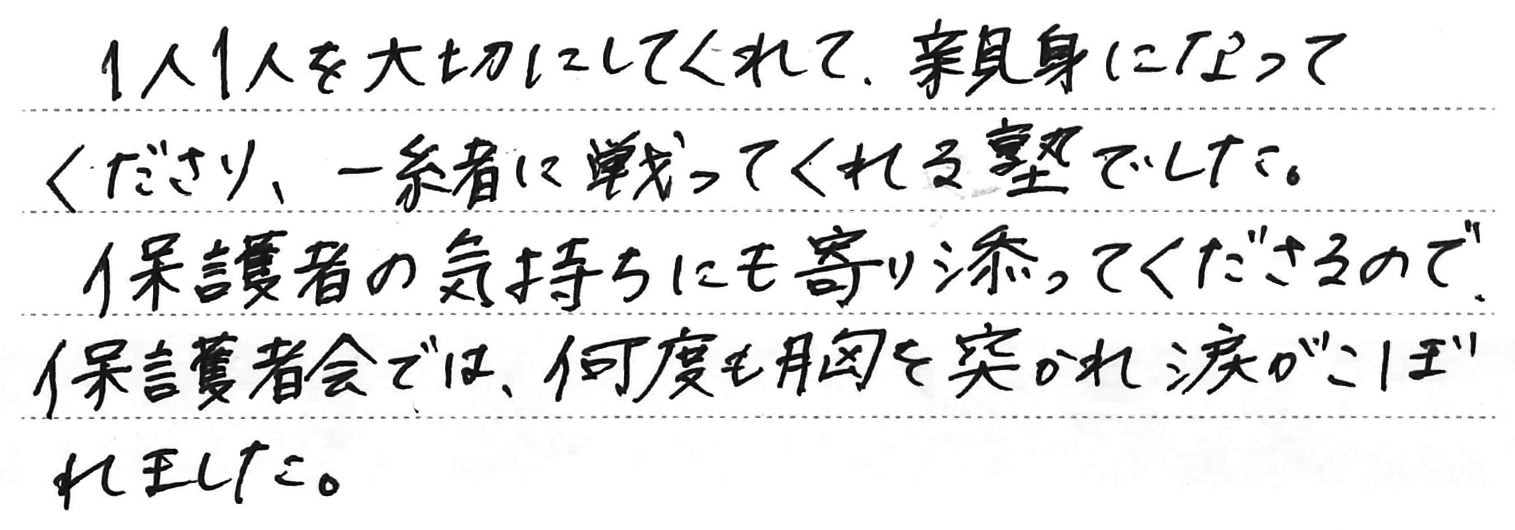 1人1人を大切にしてくれて、親身になって
くださり、一緒に戦ってくれる塾でした。
保護者の気持ちにも寄り添ってくださるので、
保護者会では、何度も胸を突かれ涙がこぼ
れました。